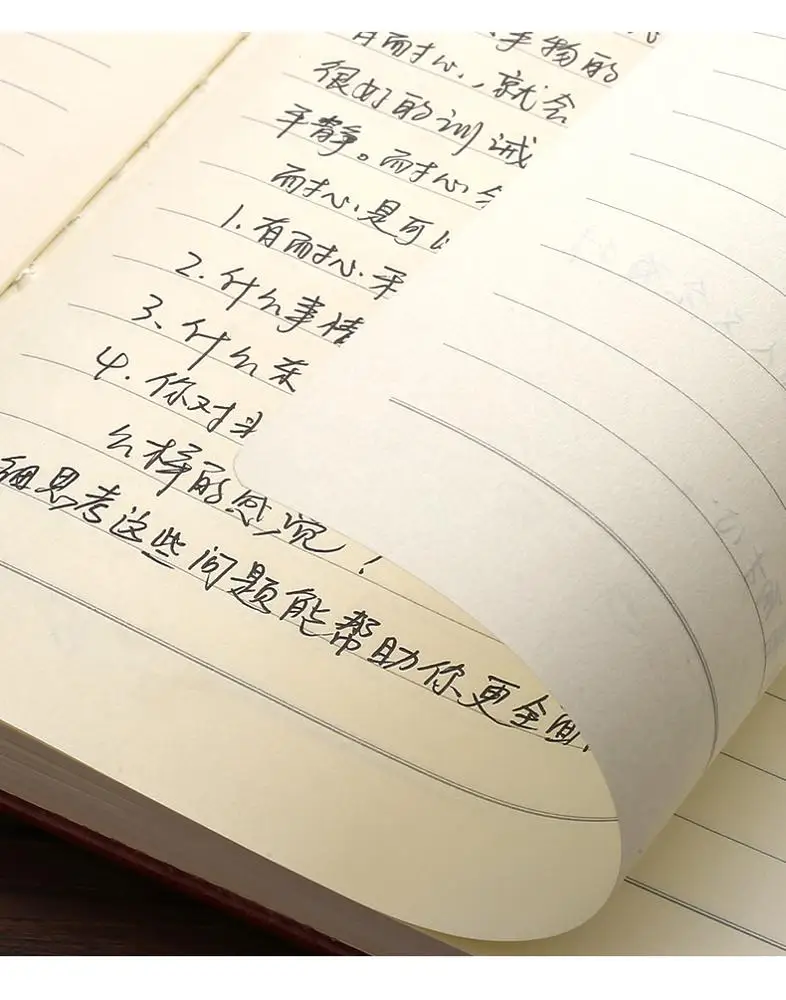 事物的
有耐心,就会
很好的训诫
平静。而耐心
耐心是可以
1.有耐心平
2.什么事情
3.什么东
4.你对
么样的感觉!
细思考这些问题能帮助你更全面